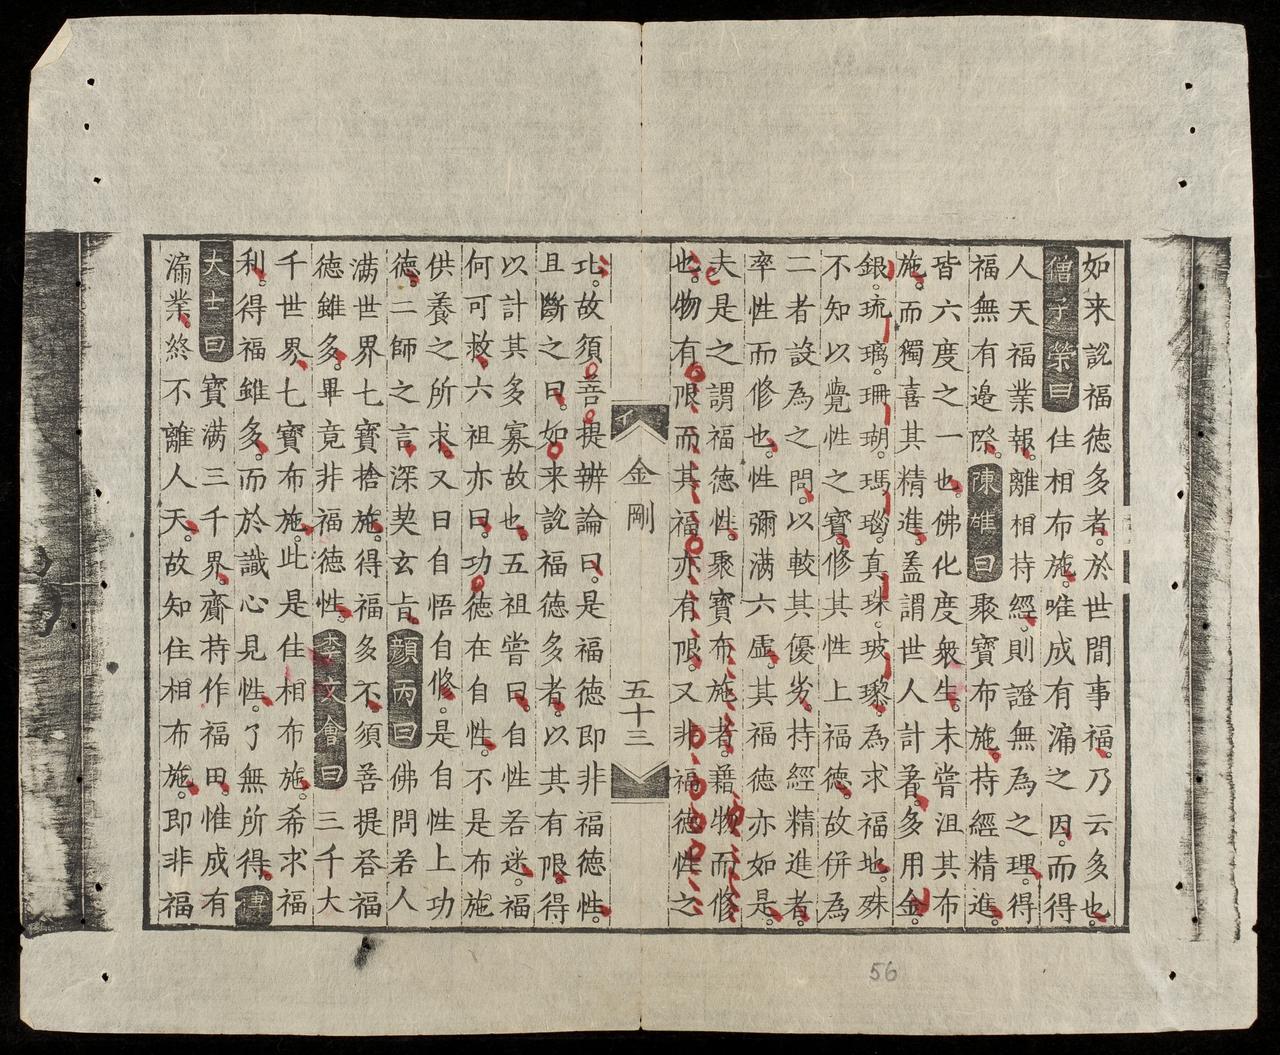 如来說福德多者。於世間事福。乃云多也。
僧子榮曰住相布施。唯成有漏之因。而得
人天福業報。離相持經。則證無為之理。得
福無有邉際。陳雄曰聚寶布施。持經精進。
皆六度之一也。佛化度衆生。未嘗沮其布
施。而獨喜其精進。葢謂世人計著。多用金。
銀。琉璃。珊瑚。瑪瑙。真珠。玻瓈。為求福地。殊
不知以覺性之寶。修其性上福德。故併為
二者設為之問。以較其優劣。持經精進者。
率性而修也。性彌满六虛。其福德亦如是。
夫是之謂福德性。聚寶布施者。藉物而修
也。物有限。而其福亦有限。又非福德性之
比。故須菩提辨論曰。是福德即非福德性。
且斷之曰。如来說福德多者。以其有限。得
以計其多寡故也。五祖嘗曰。自性若迷。福
何可救。六祖亦曰。功德在自性。不是布施
供養之所求。又曰自悟自修。是自性上功
德。二師之言。深契玄㫖。顔丙曰佛問若人
满世界七寶捨施。得福多不。須菩提荅福
德雖多。畢竟非福德性。李文會曰三千大
千世界。七寶布施。此是住相布施。希求福
利。得福雖多。而於識心見性。了無所得。傅
大士曰寳满三千界。齎持作福田。惟成有
漏業。終不離人天。故知住相布施。即非福
金剛
五十三
56